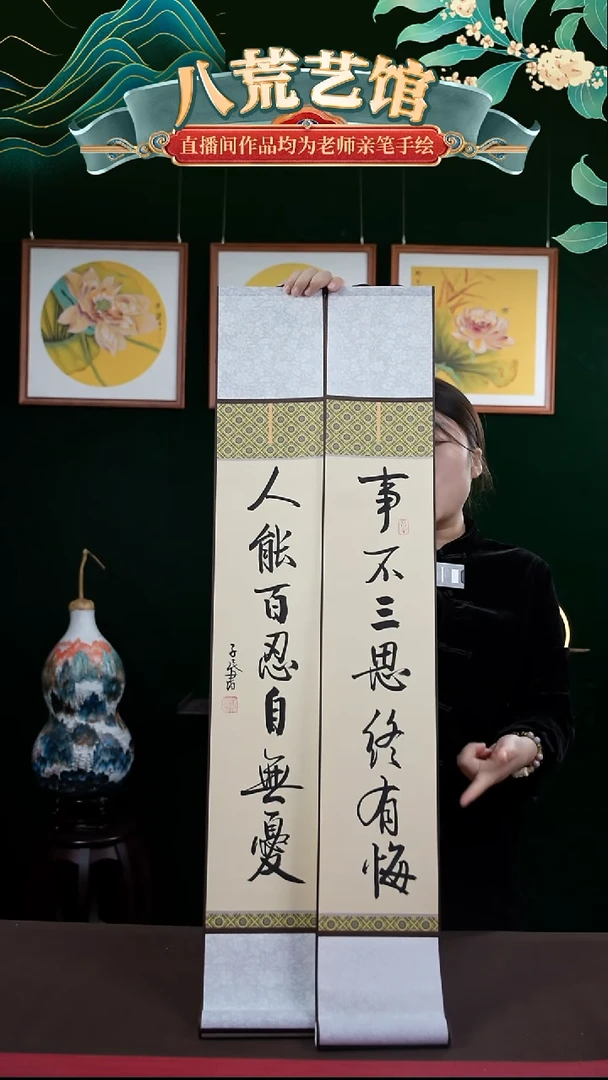 八荒艺馆
直播间作品均为老师亲笔手绘
事不三思终有悔
人能百忍自無憂
子辰書